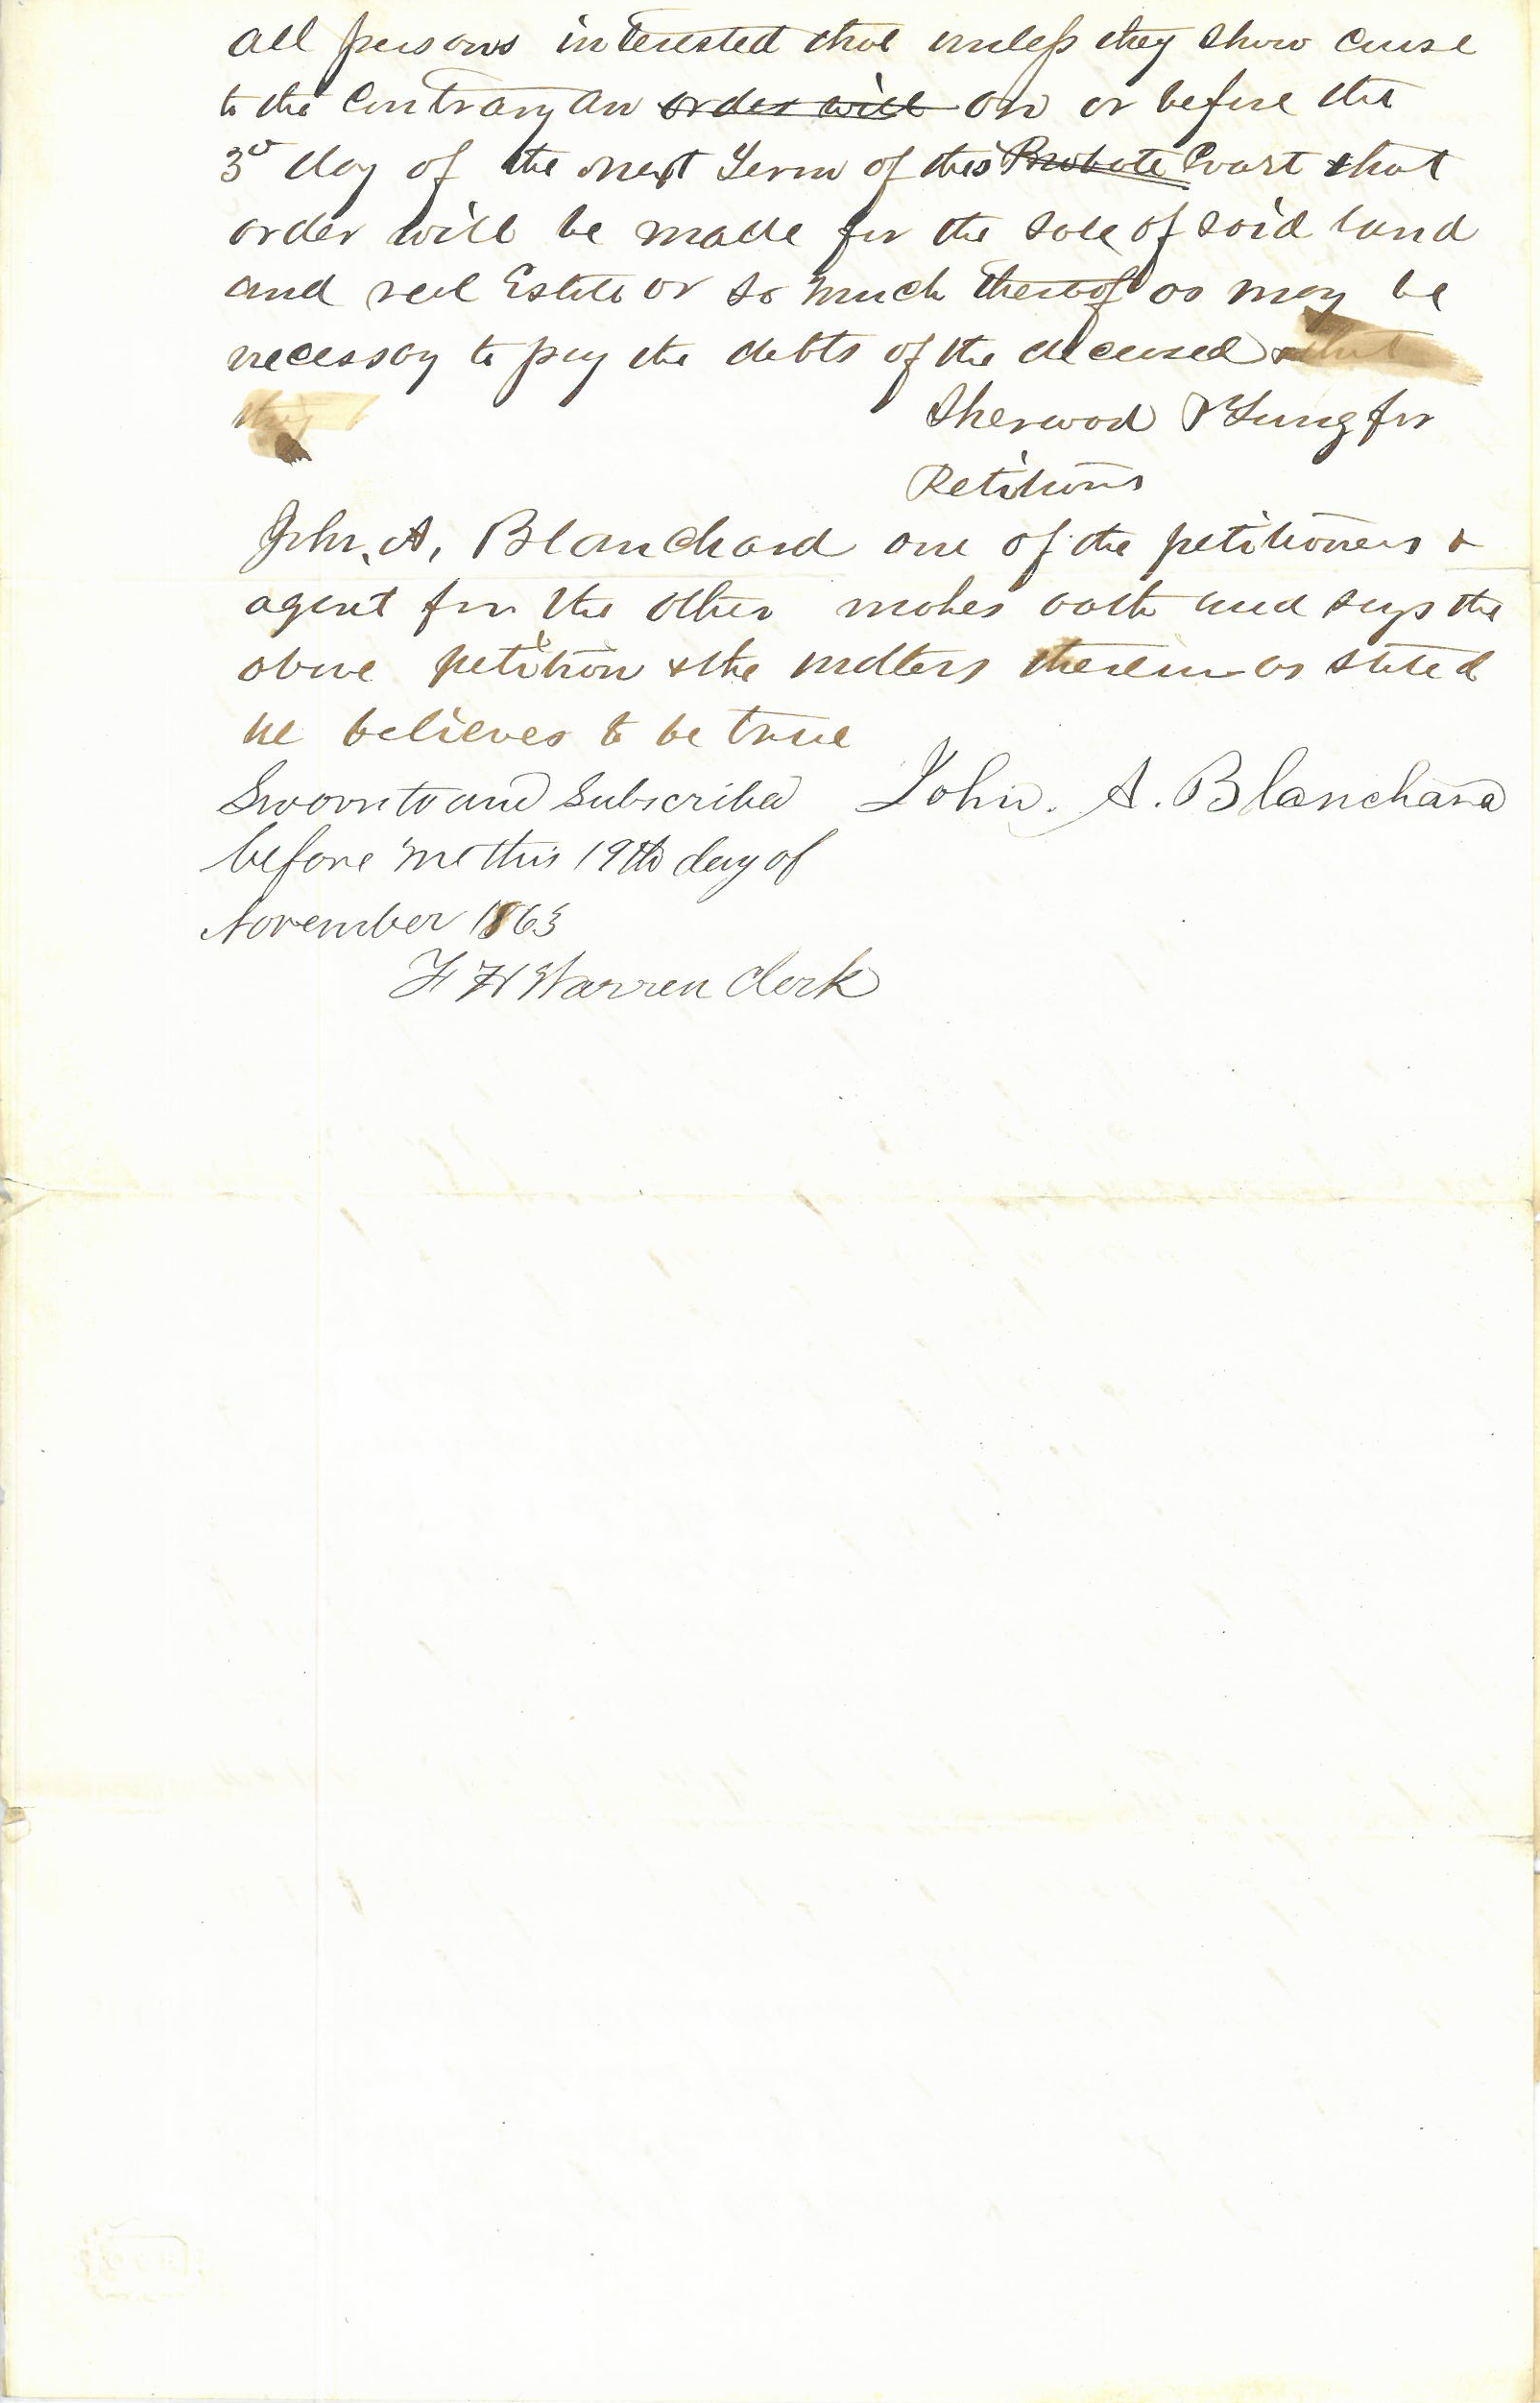 all persons interested that unless they show cause
to the Contrary an order will on or before the
3d day of the next Term of this Probate Court that
order will be made for the sale of said land
and real Estate or so much thereof as may be
necessary to pay the debts of the deceased & that
they
Sherwood & Young for
Petitions
John, A, Blanchard one of the petitioners &
agent for the other makes oath and says the
above petition & the matters therein as stated
he believes to be true
Sworn to and Subscribed John. A. Blanchard
before me this 19th day of
November 1863
Warren Clerk